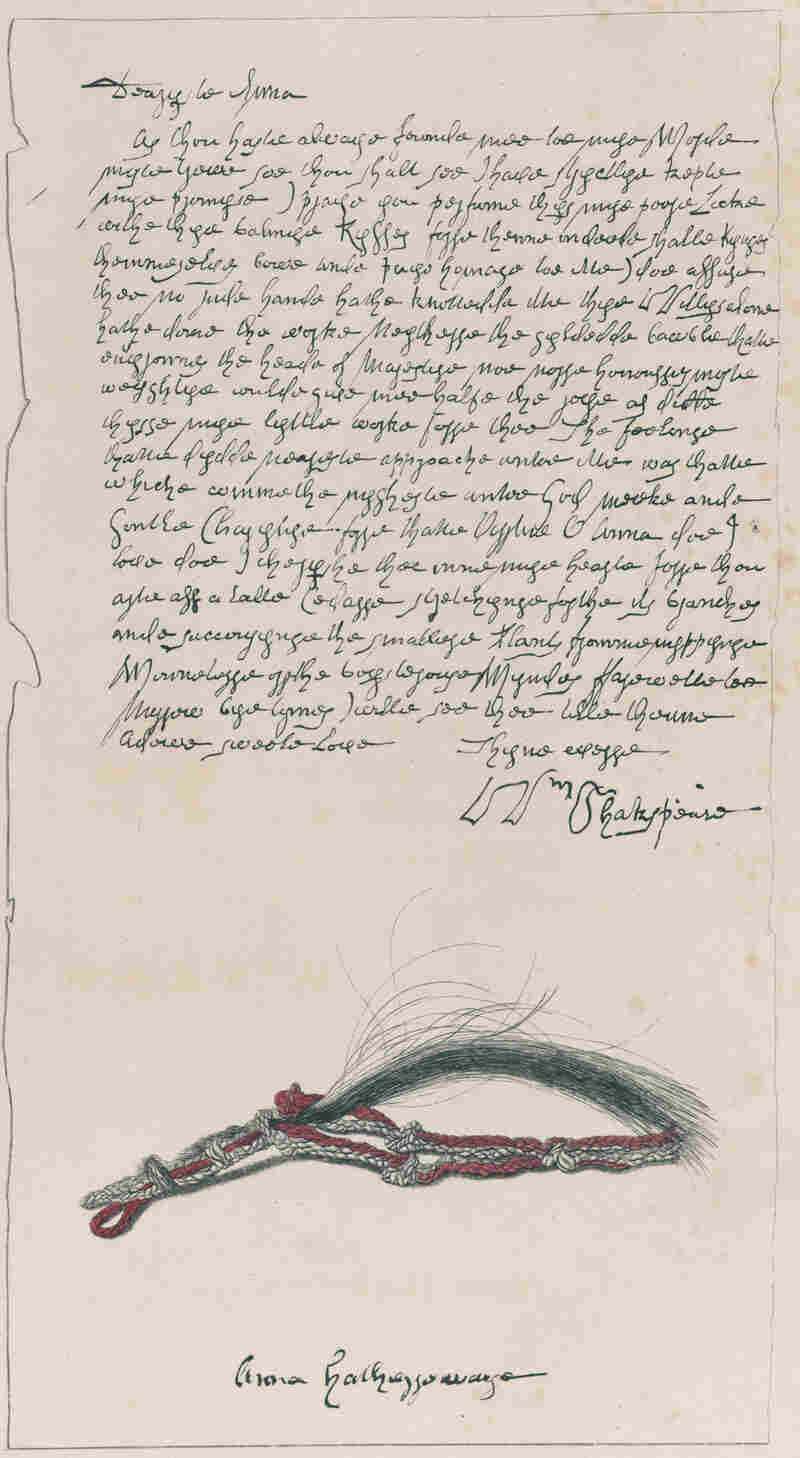 Dearesste Anna
As thou haste alwaye founde mee toe mye Worde
moste trewe soe thou shalt see I have stryctlye kepte
mye promyse I praye you perfume thys mye poore Locke
withe thye balmye Kysses forre thenne indeede shalle Kynges
themmeselves bowe ande paye homage toe itte I doe assure
thee no rude hande hathe knottedde itte thye Willys alone
hathe done the worke Neytherre the gyldedde bawble thatte
envyronnes the heade of Majestye noe norre honourres moste
weyghtye wulde give mee halfe the joye as didde
thysse mye lyttle worke forre thee The feelinge
thatte dydde neareste approache untoe itte was thatte
whiche commethe nygheste untoe God meeke ande
Gentle Charytye forre thatte Virrtue O Anna doe I
love doe I cheryshe thee inne mye hearte forre thou
arte ass a talle Cedarre stretchynge forthe its branches
ande succourynge the smallere Plants fromme nyppynge
Winneterre orr the boysterouse Wyndes Farewelle toe
Morrowe bye tymes I wille see thee tille thenne
Adewe sweete Love Thyne everre
Wm Shakspeare
Anna Hatherrewaye